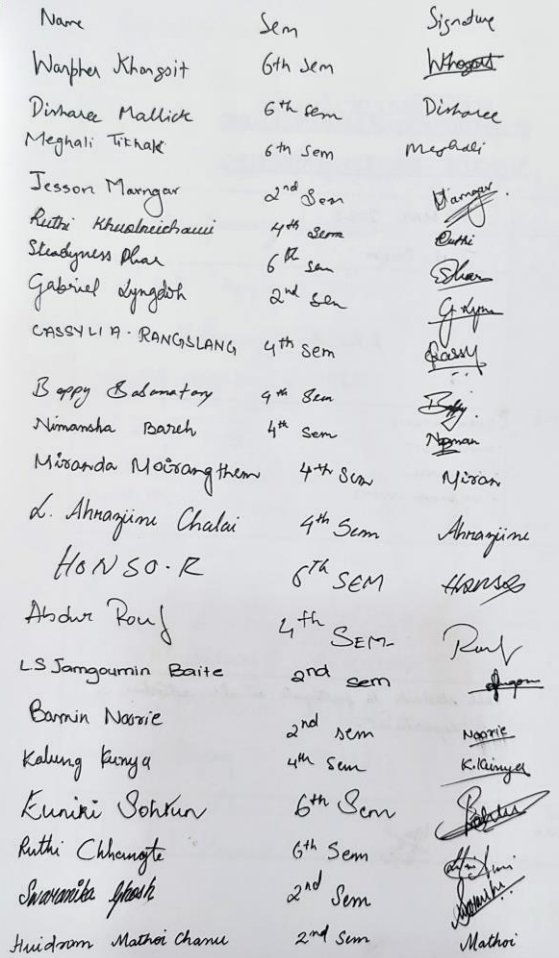 Name Sem Signature
Warpher Khongsit 6th Sem
Disharee Mallick 6th Sem Disharee
Meghali Tikhak 6th Sem Meghali
Jesson Marngar 2nd Sem Marngar
Ruthi 4th Sem Ruthi
Steadyness Dhar 6th Sem Dhar
Gabriel Lyngdoh 2nd Sem G Lyn
CASSYLIA. RANGSLANG 4th Sem Cassy
Bappy Basumatary 4th Sem
Nimansha Bareh 4th Sem
Miranda Moirangthem 4th Sem Miran
L. Ahranjiine Chalai 4th Sem Ahranjiine
HONSO. R 6Th SEM HONSO
Abdur Rouf 4th SEM Rouf
LS Jamgoumin Baite 2nd Sem
Bamin Naorie 2nd Sem Naorie
Kalung Kunya 4th Sem K. Kunya
Euniki Sohtun 6th Sem
Ruthi Chhangte 6th Sem
Swarnika Ghosh 2nd Sem
Huidrom Mathoi Chanu 2nd Sem Mathoi